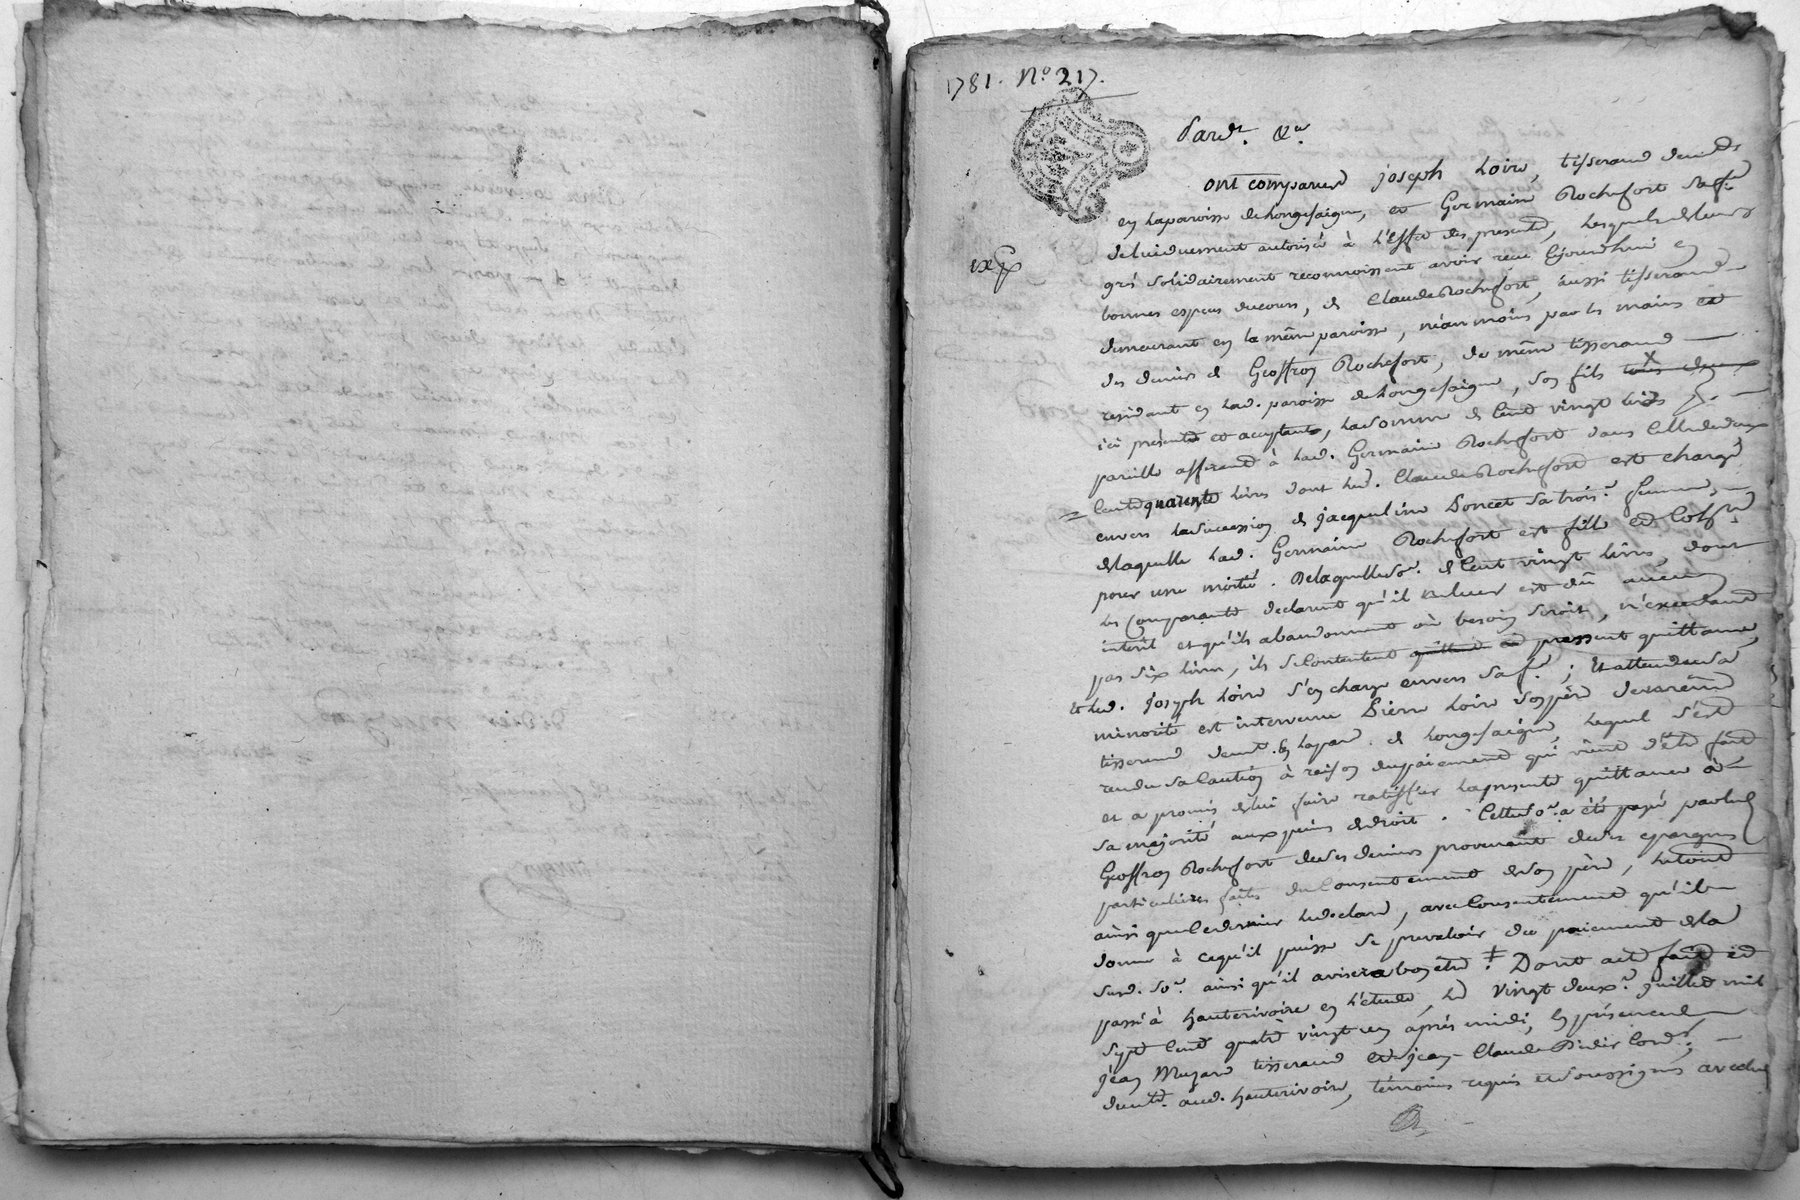 1781. N° 217.
Pardt. &a.
ont comparu joseph Loire, tisserand demt
en la paroisse de Longesaigne, et Germaine Rochefort sa fe.
de lui duement autorisée à l'effet des presentes, lesquels de leurs
exp
grés solidairement reconnoissent avoir reçu ce jourd'hui en
bonnes especes du cours, de Claude Rochefort, aussi tisserand
demeurant en la même paroisse, néanmoins par les mains et
des deniers de Geoffroy Rochefort, de même tisserand
residant en lad. paroisse de Longesaigne, son fils tous deux
ici présents et acceptants, la somme de Cent vingt livres
pareille afferante à lad. Germaine Rochefort dans celle de deux
Cent quarante livres dont led. Claude Rochefort est chargé
envers la succession de jacqueline Doncet sa trois.e femme,
de laquelle lad. Germaine Rochefort est fille et cohre.
pour une moitié. De laquelle so.e de Cent vingt livres, dont
les Comparants declarent qu'il ne leur est dû aucun
interêt et qu'ils abandonnent où besoin seroit, n'excedant
pas six livres, ils se contentent quittent et passent quittance,
et led. joseph Loire s'en charge envers sa fe.; Et attendu sa
minorité est intervenu Pierre Loire son père de même
tisserand demt. en la par. de Longesaigne, lequel s'est
rendu sa Caution à raison du paiement qui vient d'être fait
et a promis de lui faire ratiffier la presente quittance à
sa majorité aux peines de droit. Cette so.e a été payé par led.
Geoffroy Rochefort de ses deniers provenant de ses epargnes
particulieres faites du Consentement de son père, le tout
ainsi que ce dernier le declare, avec Consentement qu'il
donne à ce qu'il puisse se prevaloir du paiement de la
susd. so.e ainsi qu'il avisera bon être. ‡ Dont acte fait et
passé à hauterivoire en l'étude, le vingt deux.e juillet mil
sept Cent quatre vingt un après midi, en présence de
jean Mazard tisserand et de jean-Claude Didier Cord.r,
demts. aud. hauterivoire, témoins requis et soussignés avec led.